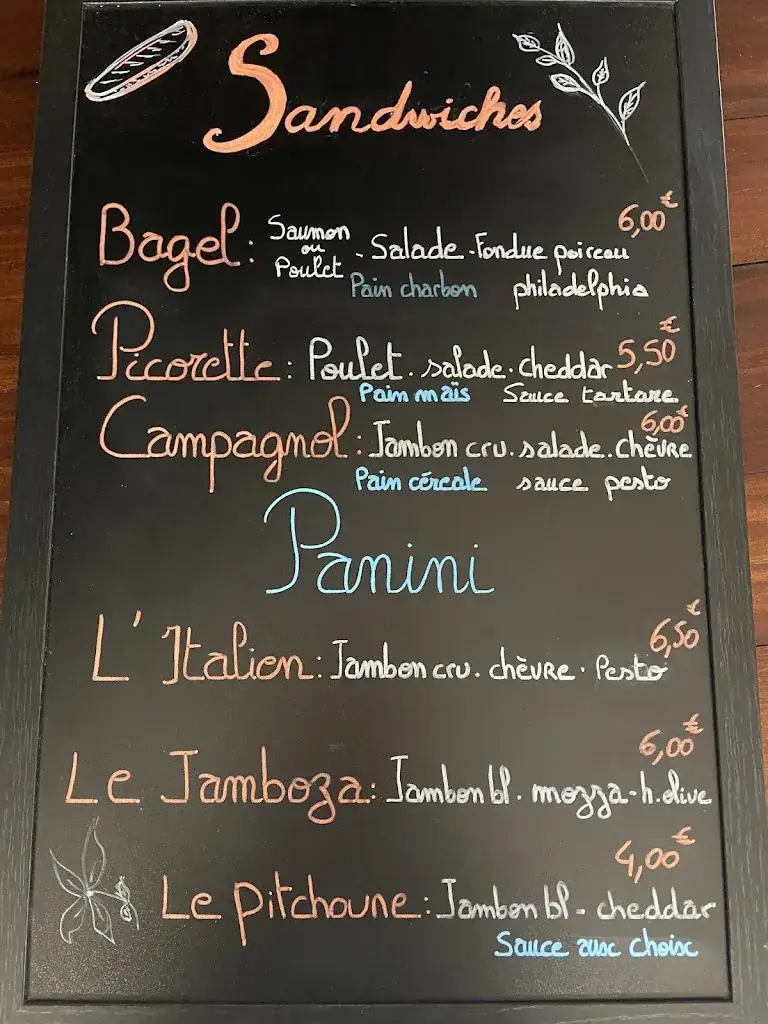 Sandwiches
6,00€
Bagel : Saumon ou Poulet - Salade - Fondue poireau
Pain charbon philadelphia
Picorette : Poulet . salade . cheddar 5,50€
Pain maïs Sauce tartare
6,00€
Campagnol : Jambon cru . salade . chèvre
Pain céréale sauce pesto
Panini
6,50€
L'Italien : Jambon cru . chèvre . Pesto
6,00€
Le Jamboza : Jambon bl . mozza - h.olive
4,00€
Le pitchoune : Jambon bl - cheddar
Sauce aux choix